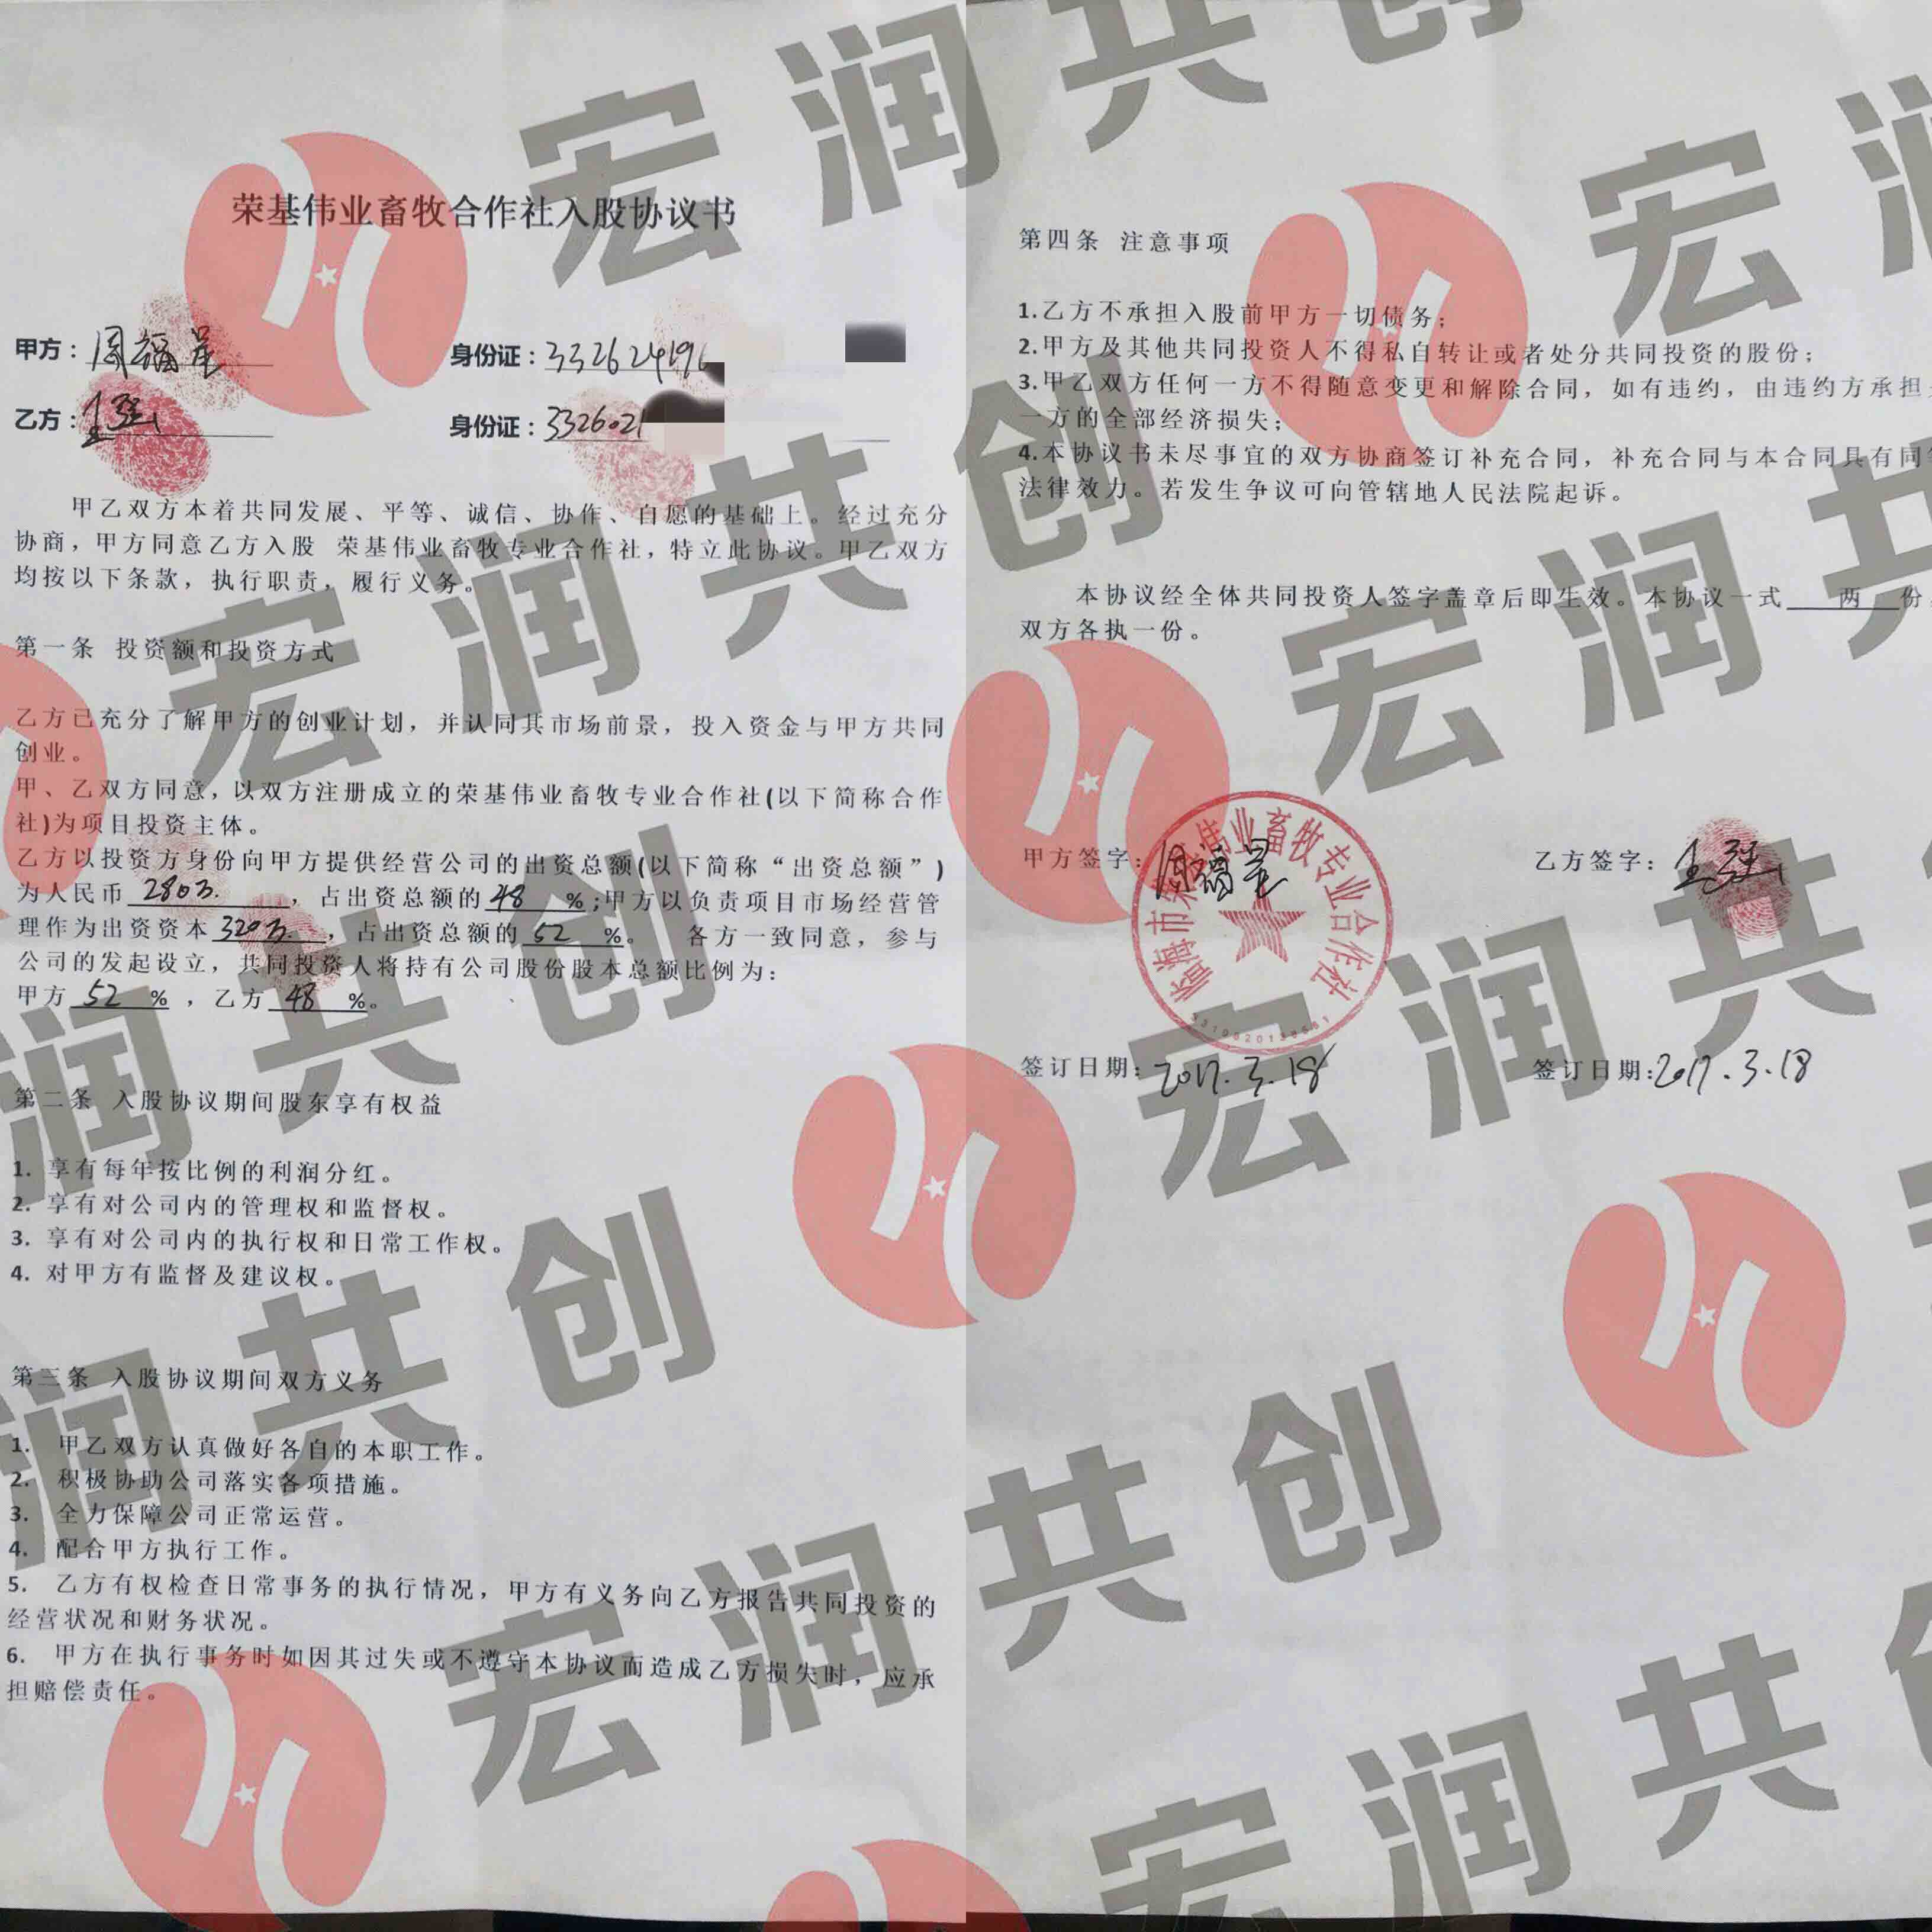 荣基伟业畜牧合作社入股协议书
甲方：周福星 身份证：332624196
乙方：王强 身份证：3326021
甲乙双方本着共同发展、平等、诚信、协作、自愿的基础上。经过充分
协商，甲方同意乙方入股 荣基伟业畜牧专业合作社，特立此协议。甲乙双方
均按以下条款，执行职责，履行义务。
第一条 投资额和投资方式
乙方已充分了解甲方的创业计划，并认同其市场前景，投入资金与甲方共同
创业。
甲、乙双方同意，以双方注册成立的荣基伟业畜牧专业合作社(以下简称合作
社)为项目投资主体。
乙方以投资方身份向甲方提供经营公司的出资总额(以下简称“出资总额”)
为人民币 280万. ，占出资总额的 48 %;甲方以负责项目市场经营管
理作为出资资本 320万. ，占出资总额的 52 %。 各方一致同意，参与
公司的发起设立，共同投资人将持有公司股份股本总额比例为：
甲方 52 % ，乙方 48 %。
第二条 入股协议期间股东享有权益
1. 享有每年按比例的利润分红。
2. 享有对公司内的管理权和监督权。
3. 享有对公司内的执行权和日常工作权。
4. 对甲方有监督及建议权。
第三条 入股协议期间双方义务
1. 甲乙双方认真做好各自的本职工作。
2. 积极协助公司落实各项措施。
3. 全力保障公司正常运营。
4. 配合甲方执行工作。
5. 乙方有权检查日常事务的执行情况，甲方有义务向乙方报告共同投资的
经营状况和财务状况。
6. 甲方在执行事务时如因其过失或不遵守本协议而造成乙方损失时，应承
担赔偿责任。
第四条 注意事项
1.乙方不承担入股前甲方一切债务；
2.甲方及其他共同投资人不得私自转让或者处分共同投资的股份；
3.甲乙双方任何一方不得随意变更和解除合同，如有违约，由违约方承担
一方的全部经济损失；
4.本协议书未尽事宜的双方协商签订补充合同，补充合同与本合同具有同
法律效力。若发生争议可向管辖地人民法院起诉。
本协议经全体共同投资人签字盖章后即生效。本协议一式 两 份
双方各执一份。
甲方签字：周福星 乙方签字：王强
临海市荣基伟业畜牧专业合作社
签订日期：2017.3.18 签订日期：2017.3.18
宏润共创
宏润共创
宏润共创
宏润共创
宏润共创
宏润共创